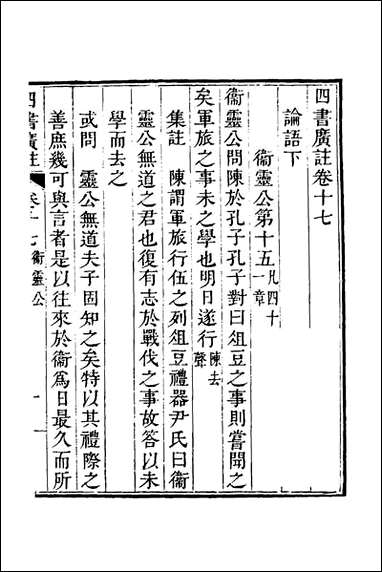 四書廣註卷十七
論語下
衞靈公第十五凡四十一章
衞靈公問陳於孔子孔子對曰俎豆之事則嘗聞之
矣軍旅之事未之學也明日遂行陳去聲
集註　陳謂軍旅行伍之列俎豆禮器尹氏曰衞
靈公無道之君也復有志於戰伐之事故答以未
學而去之
或問　靈公無道夫子固知之矣特以其禮際之
善庶幾可與言者是以往來於衞爲日最久而所
四書廣註　卷十七　衞靈公　一